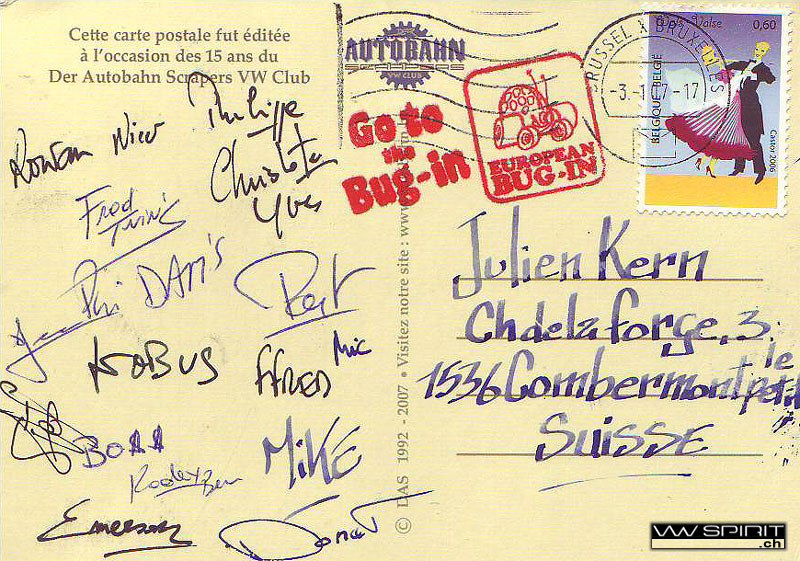 Cette carte postale fut éditée
à l'occasion des 15 ans du
Der Autobahn Scrapers VW Club
AUTOBAHN
VW CLUB
Go to
the
Bug-in
EUROPEAN
BUG-IN
BRUSSEL X BRUXELLES
-3.-1 07-17
Wals Valse
0,60
BELGIQUE BELGIË
Castor 2006
Rowan Nico Philippe
Christophe
Yves
Fred
Phi DAM'S
Bert
KOBUS FFRED Mic
BOAA MiKE
Emerson Donat
© DAS 1992 - 2007 • Visitez notre site : www
Julien Kern
Ch de la forge, 3.
1536 Combermont le petit
SUISSE
VW SPIRIT
.ch